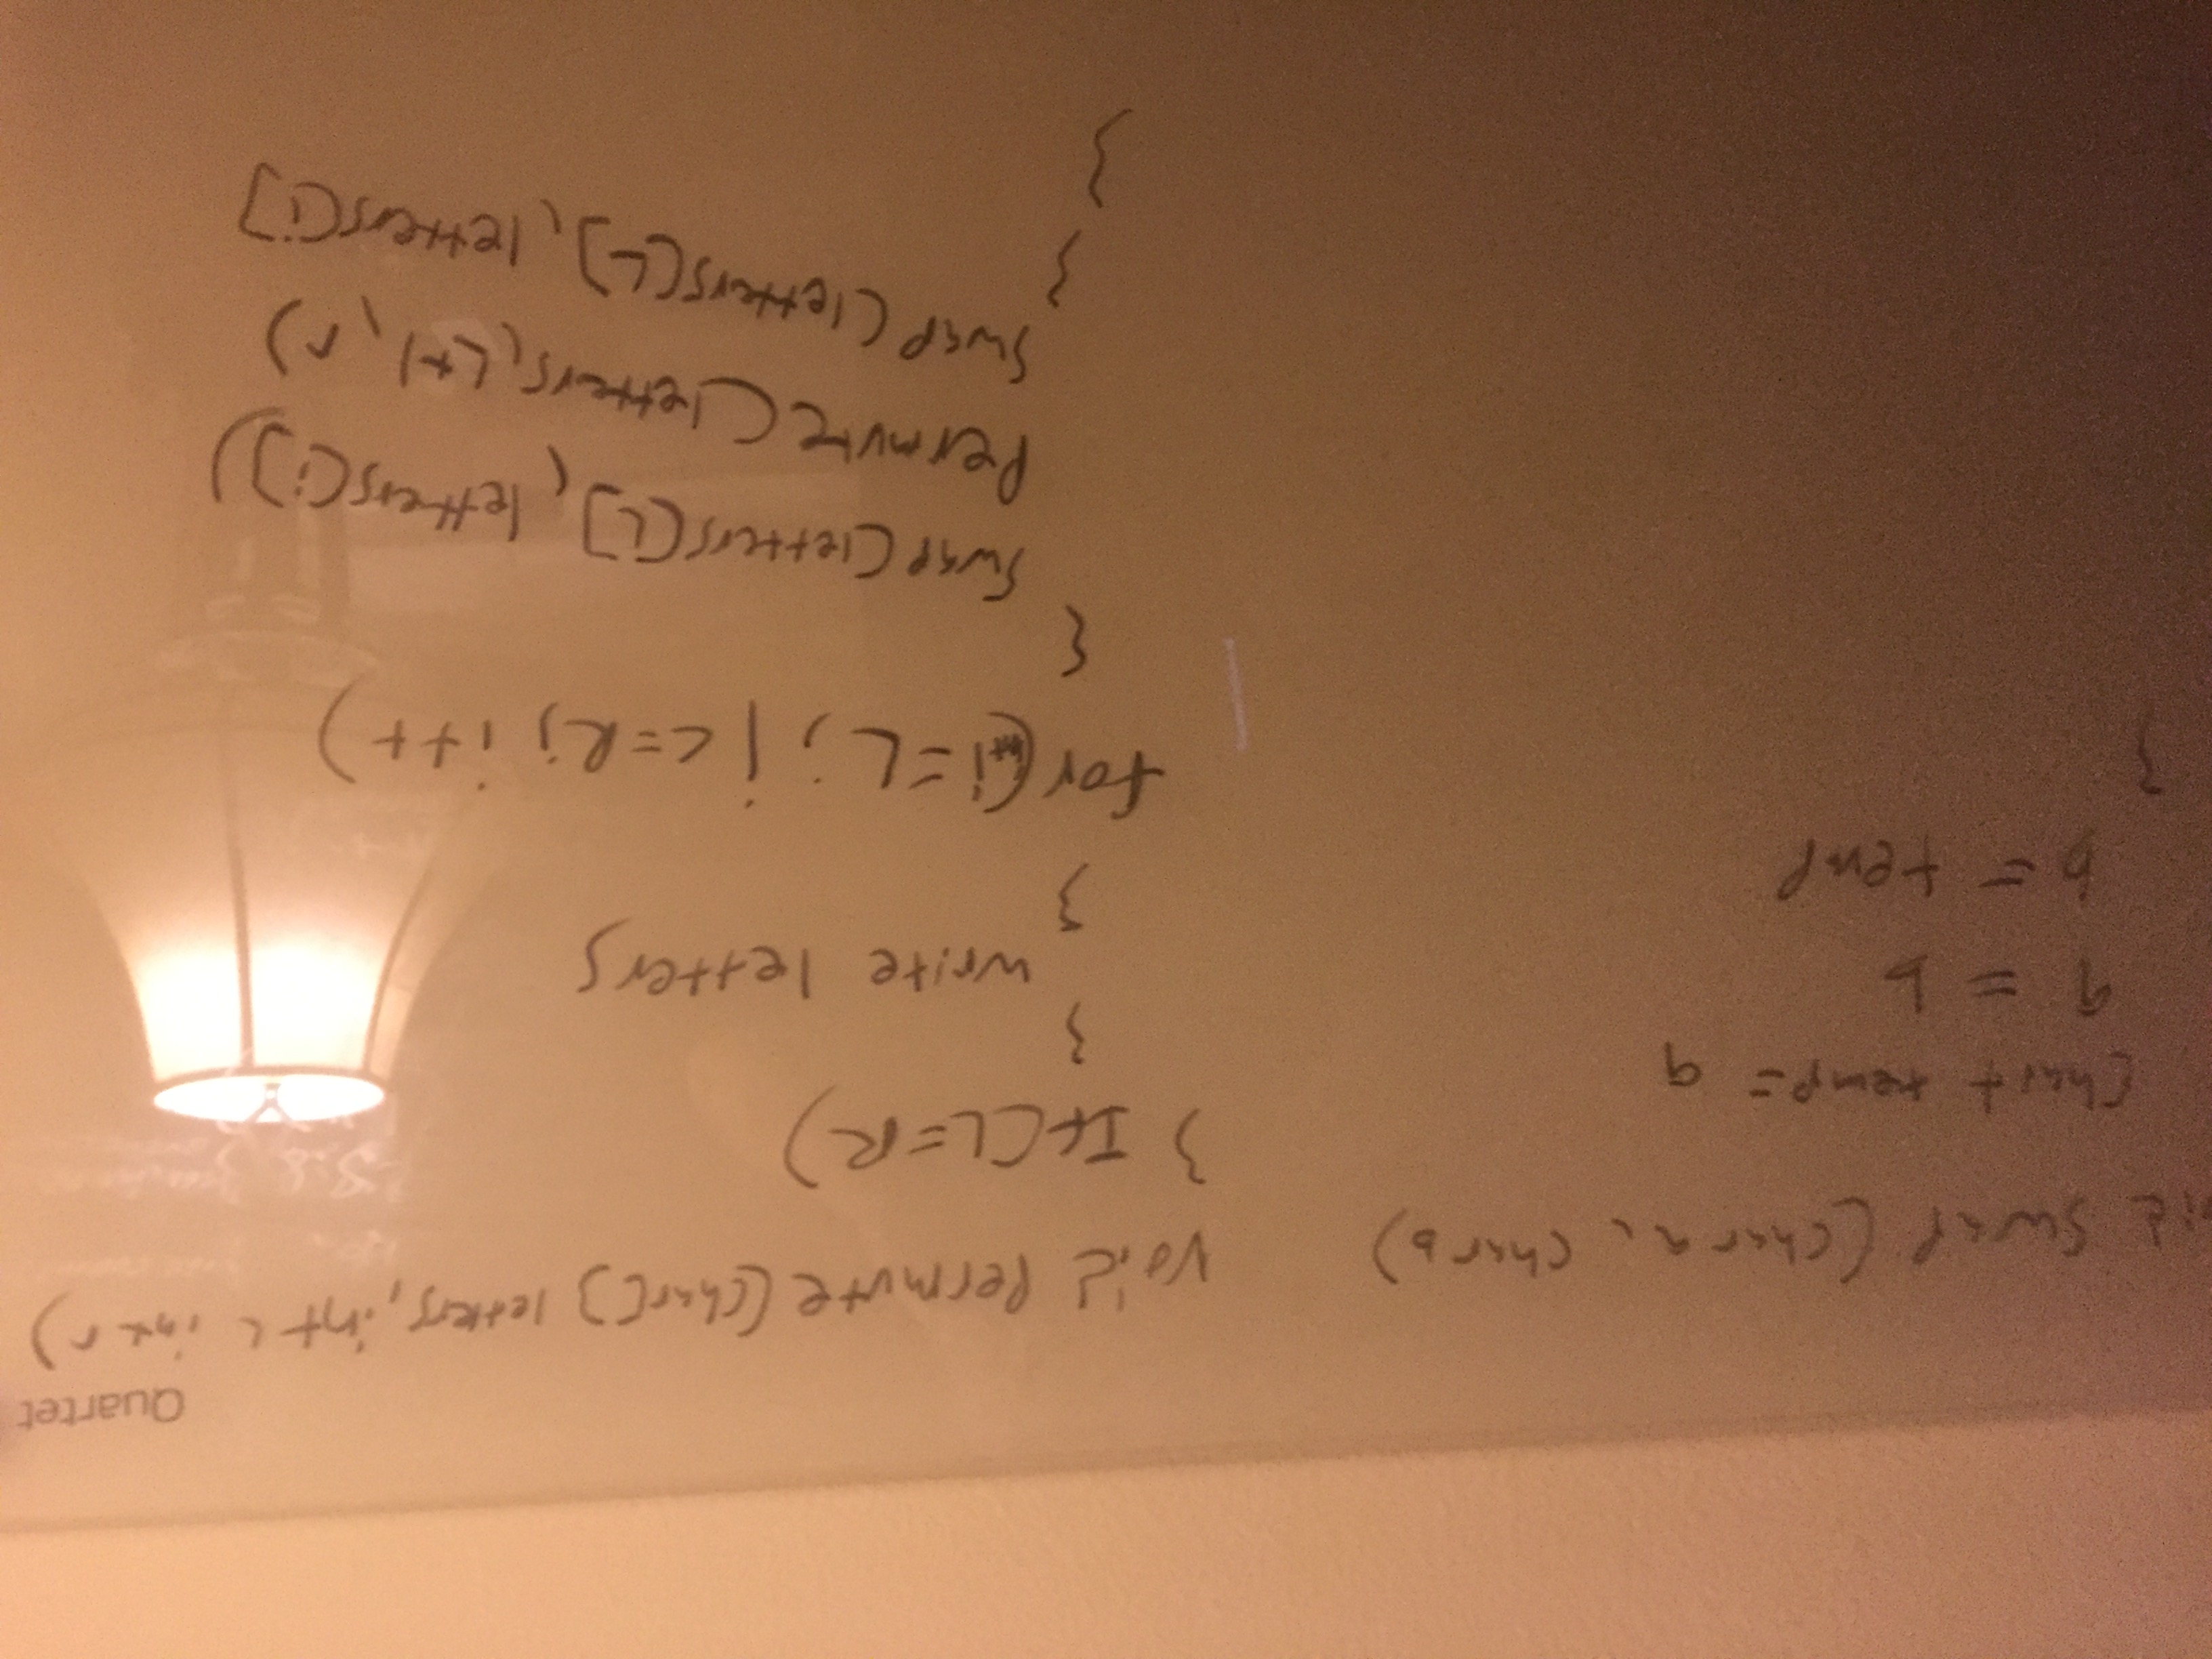 Quartet
void Swap (char a, char b)
Chart temp = a
a = b
b = temp
}
Void Permute (char[] letters, int L int r)
} If (L=R)
}
write letters
}
for (int i = L; i <= R; i++)
{
Swap (letters[L], letters[i])
Permute (letters, L+1, r)
Swap (letters[L], letters[i]
}
}